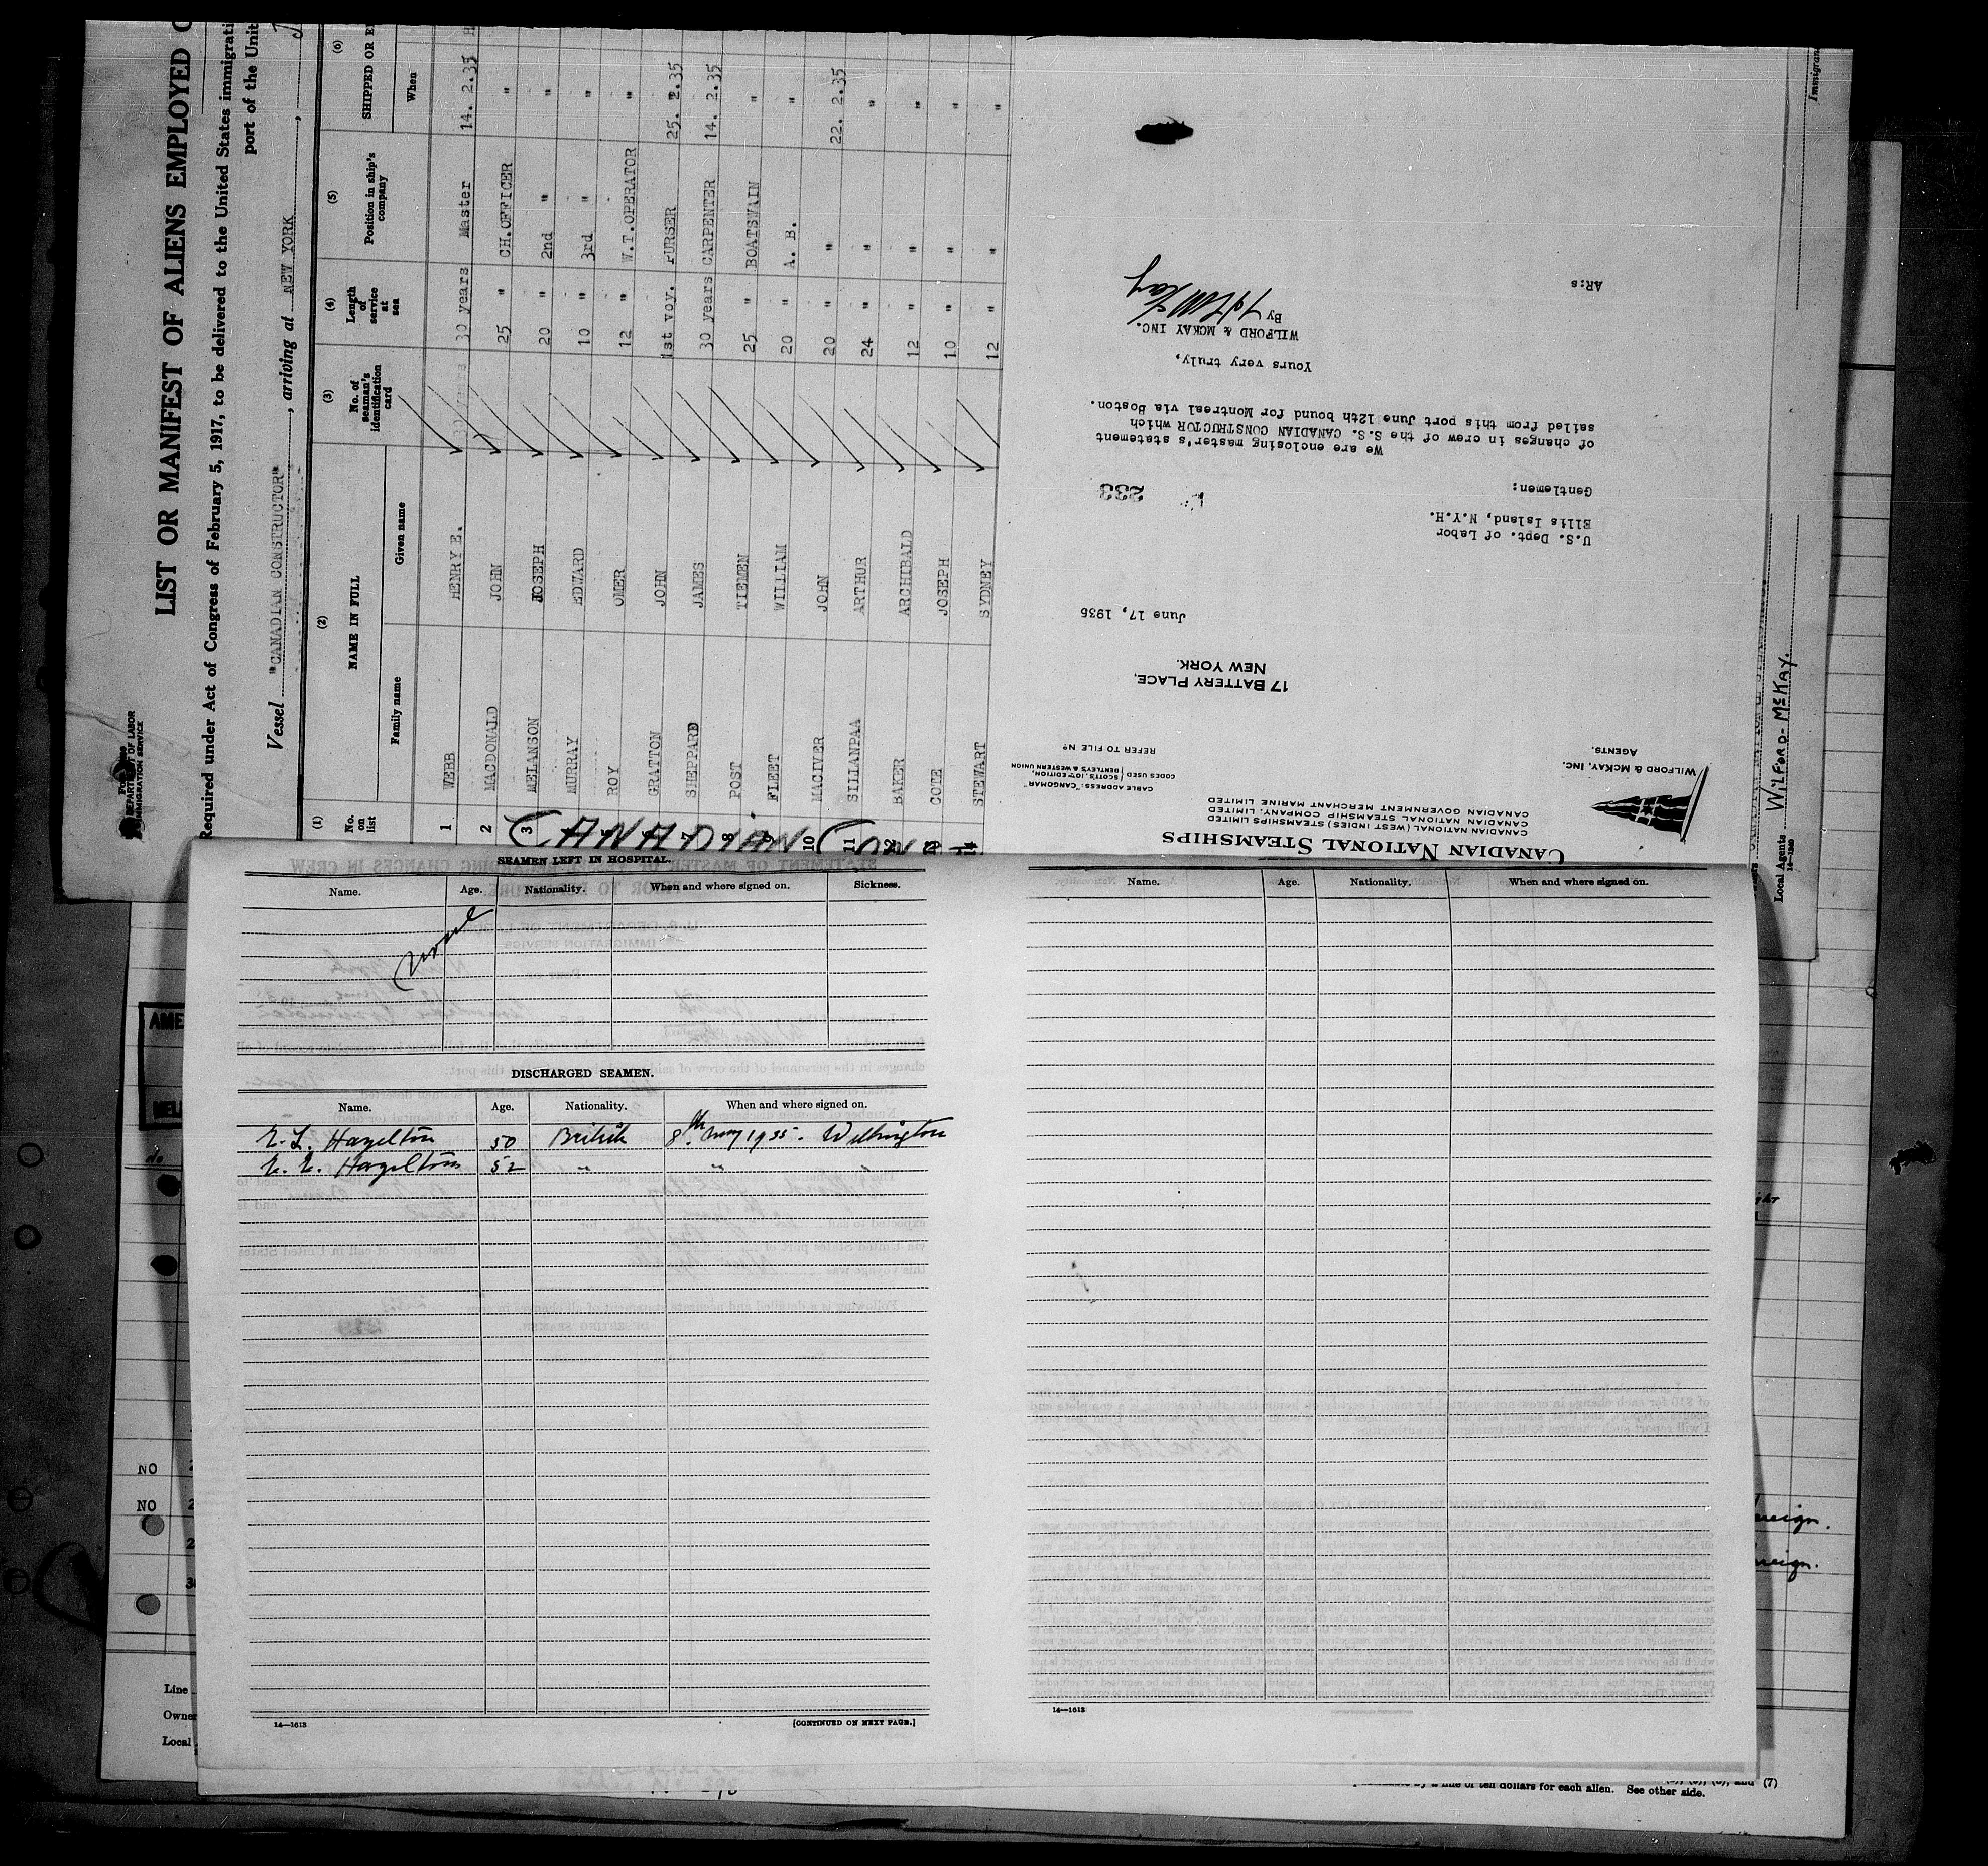 LIST OR MANIFEST OF ALIENS EMPLOYED
Required under Act of Congress of February 5, 1917, to be delivered to the United States
port of the
Vessel "CANADIAN CONSTRUCTOR", arriving at NEW YORK,
DEPARTMENT OF LABOR
IMMIGRATION SERVICE
(1) (2) (3) (4) (5) (6)
No. on list
NAME IN FULL
Family name Given name
No. of seaman's identification card
Length of service at sea
Position in ship's company
SHIPPED OR
When
1 WEBB HENRY E. 30 years Master 14. 2.35
2 MACDONALD JOHN 25 " CH.OFFICER "
3 MELANSON JOSEPH 20 " 2nd " "
MURRAY EDWARD 10 " 3rd " "
ROY OMER 12 " W.T.OPERATOR "
GRATTON JOHN 1st voy. PURSER 25. 2.35
7 SHEPPARD JAMES 30 years CARPENTER 14. 2.35
8 POST TIEMEN 25 " BOATSWAIN "
FLEET WILLIAM 20 " A. B. "
10 MACIVER JOHN 20 " " 22. 2.35
11 SILLANPAA ARTHUR 24 " " "
BAKER ARCHIBALD 12 " " "
COTE JOSEPH 10 " " "
14 STEWART SYDNEY 12 " " "
CANADIAN
CANADIAN NATIONAL STEAMSHIPS
CANADIAN NATIONAL (WEST INDIES) STEAMSHIPS LIMITED
CANADIAN NATIONAL STEAMSHIP COMPANY, LIMITED
CANADIAN GOVERNMENT MERCHANT MARINE LIMITED
WILFORD & McKAY, INC.
AGENTS.
CABLE ADDRESS: "CANGOMAR"
CODES USED SCOTT'S, 10TH EDITION, BENTLEY'S & WESTERN UNION
REFER TO FILE No
17 BATTERY PLACE,
NEW YORK.
June 17, 1935
U.S. Dept. of Labor
Ellis Island, N.Y.H.
Gentlemen:
233
We are enclosing master's statement
of changes in crew of the S.S. CANADIAN CONSTRUCTOR which
sailed from this port June 12th bound for Montreal via Boston.
Yours very truly,
WILFORD & MCKAY INC.
By
AR:s
Local Agents WILFORD-McKAY.
14-1240
SEAMEN LEFT IN HOSPITAL.
Name. Age. Nationality. When and where signed on. Sickness.
None
DISCHARGED SEAMEN.
Name. Age. Nationality. When and where signed on.
E. L. Hazelton 50 British 8th May 1935. Wellington
E. E. Hazelton 52 " " "
14—1613
[CONTINUED ON NEXT PAGE.]
Name. Age. Nationality. When and where signed on.
14—1613
NO
NO
Line
Owner
Local
of ten dollars for each alien. See other side.
and (7)